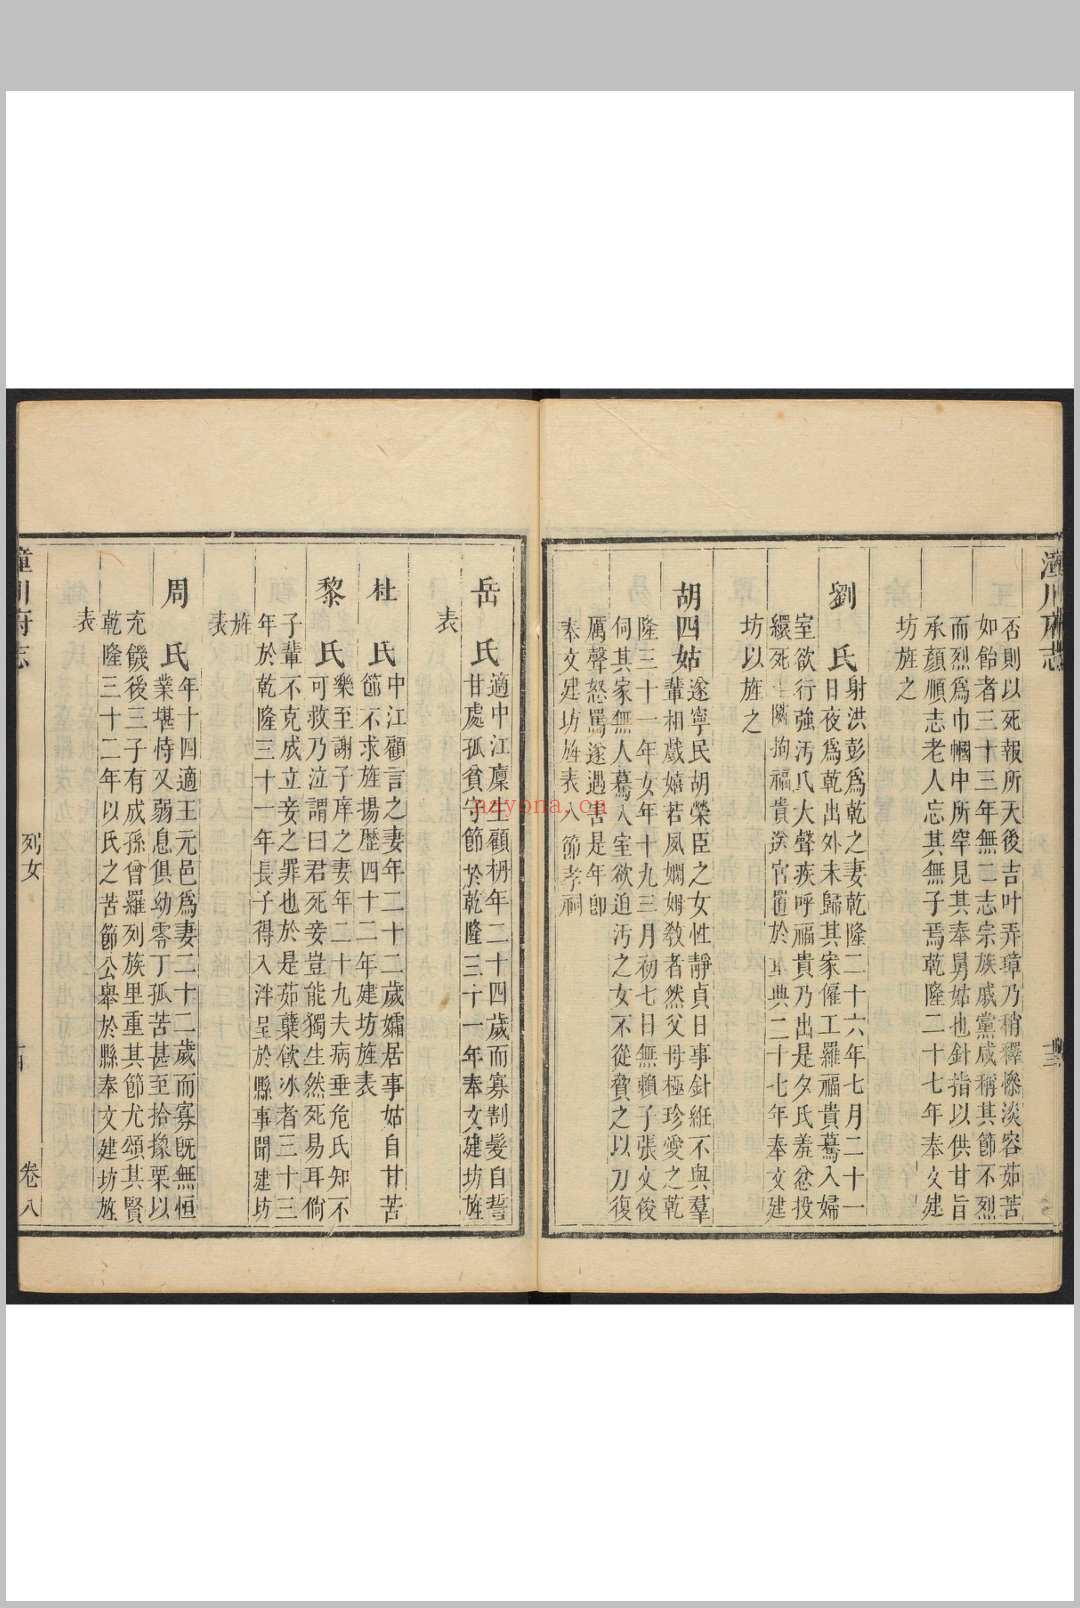 潼川府志
否則以死報所天後吉叶弄璋乃稍釋慘淡容茹苦
如飴者三十三年無二志宗族戚黨咸稱其節不烈
而烈爲巾幗中所罕見其奉舅姑也針指以供甘旨
承顏順志老人忘其無子焉乾隆二十七年奉文建
坊旌之
劉氏
射洪彭爲乾之妻乾隆二十六年七月二十一
日夜爲乾出外未歸其家僱工羅福貴驀入婦
室欲行強汚氏大聲疾呼福貴乃出是夕氏羞忿投
繯死 拘福貴送官置於 典二十七年奉文建
坊以旌之
胡四姑
遂寧民胡榮臣之女性靜貞日事針紝不與羣
輩相戲嬉若夙嫻姆教者然父母極珍愛之乾
隆三十一年女年十九三月初七日無賴子張文俊
伺其家無人驀入室欲迫汚之女不從賁之以刀復
厲聲怒罵遂遇害是年卽
奉文建坊旌表入節孝祠
岳氏
適中江廩生顧枬年二十四歲而寡割髮自誓
甘處孤貧守節於乾隆三十一年奉文建坊旌
表
杜氏
中江顧言之妻年二十二歲孀居事姑自甘苦
節不求旌揚歷四十二年建坊旌表
黎氏
樂至謝子庠之妻年二十九夫病垂危氏知不
可救乃泣謂曰君死妾豈能獨生然死易耳倘
子輩不克成立妾之罪也於是茹蘗飮冰者三十三
年於乾隆三十一年長子得入泮呈於縣事聞建坊
旌
表
周氏
年十四適王元邑爲妻二十二歲而寡旣無恒
業堪恃又弱息俱幼零丁孤苦甚至拾橡栗以
充饑後三子有成孫曾羅列族里重其節尤頌其賢
乾隆三十二年以氏之苦節公舉於縣奉文建坊旌
表
潼川府志
列女
卷八
nayona.cn